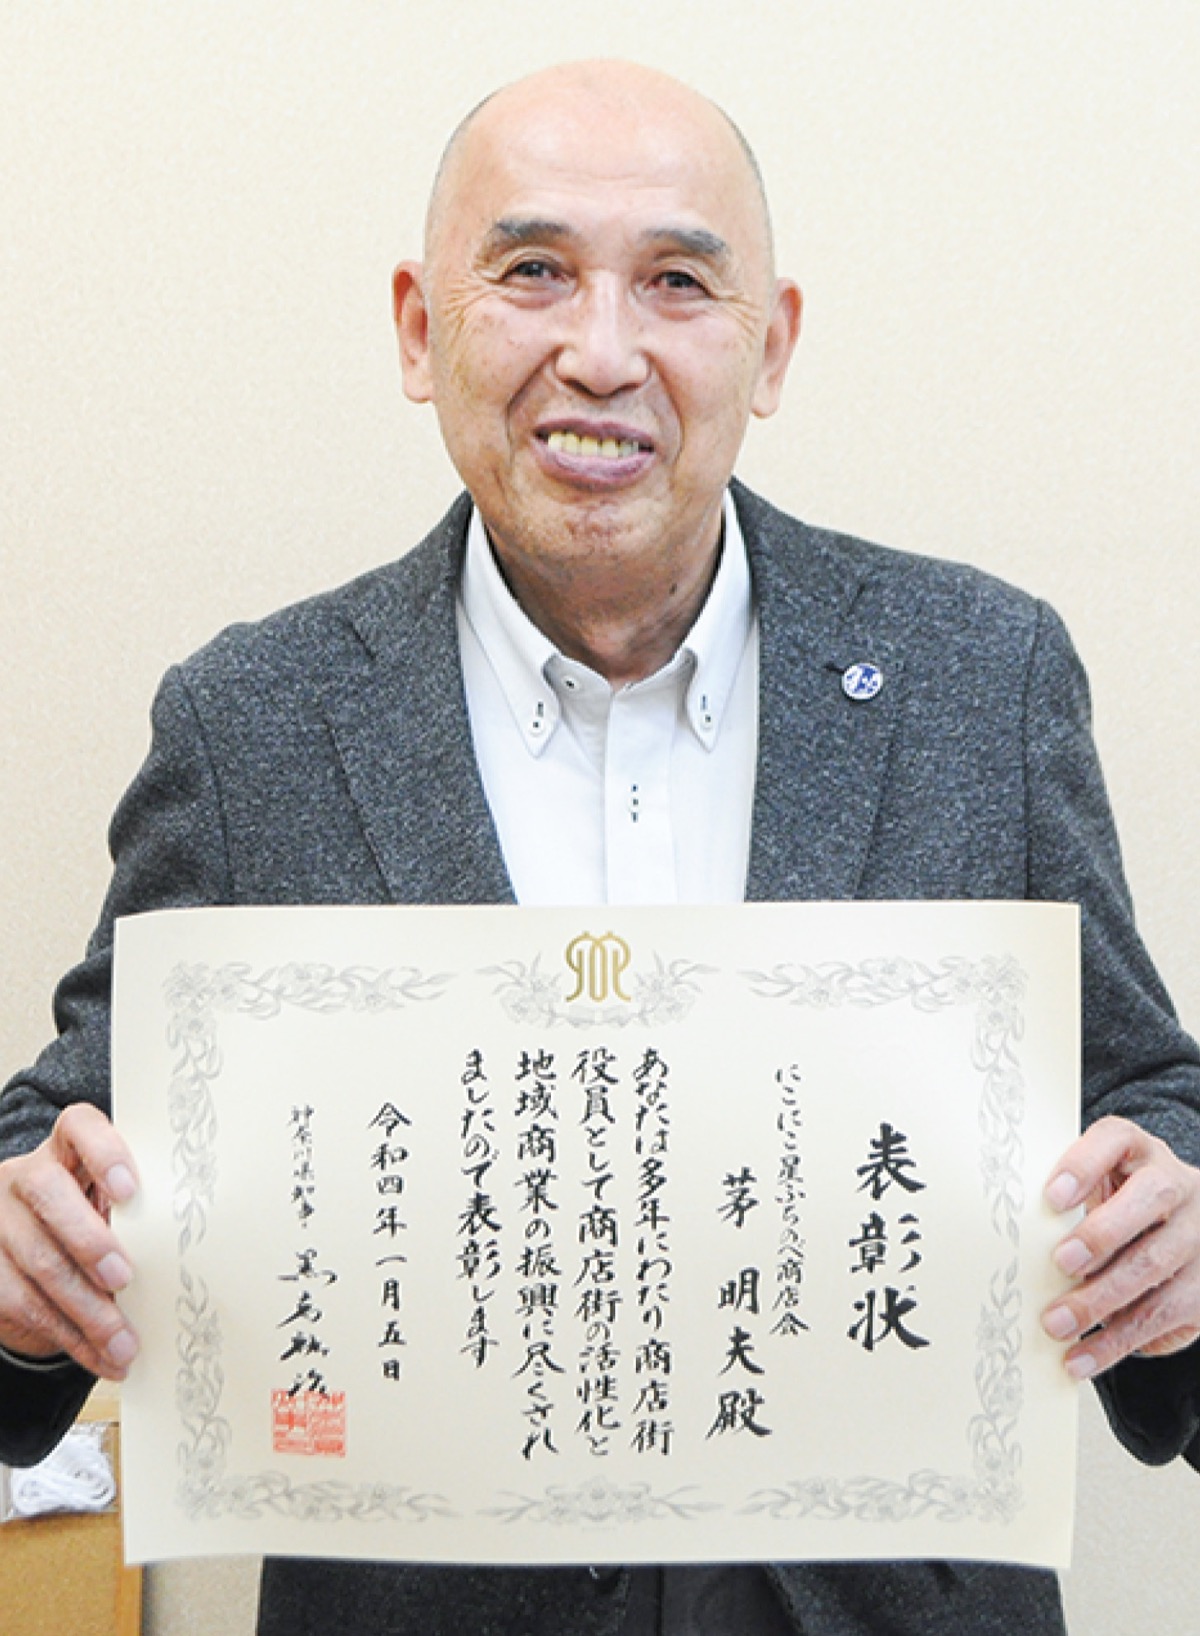 表彰状
にこにこ星ふちのべ商店会
茅明夫殿
あなたは多年にわたり商店街
役員として商店街の活性化と
地域商業の振興に尽くされ
ましたので表彰します
令和四年一月五日
神奈川県知事 黒岩祐治